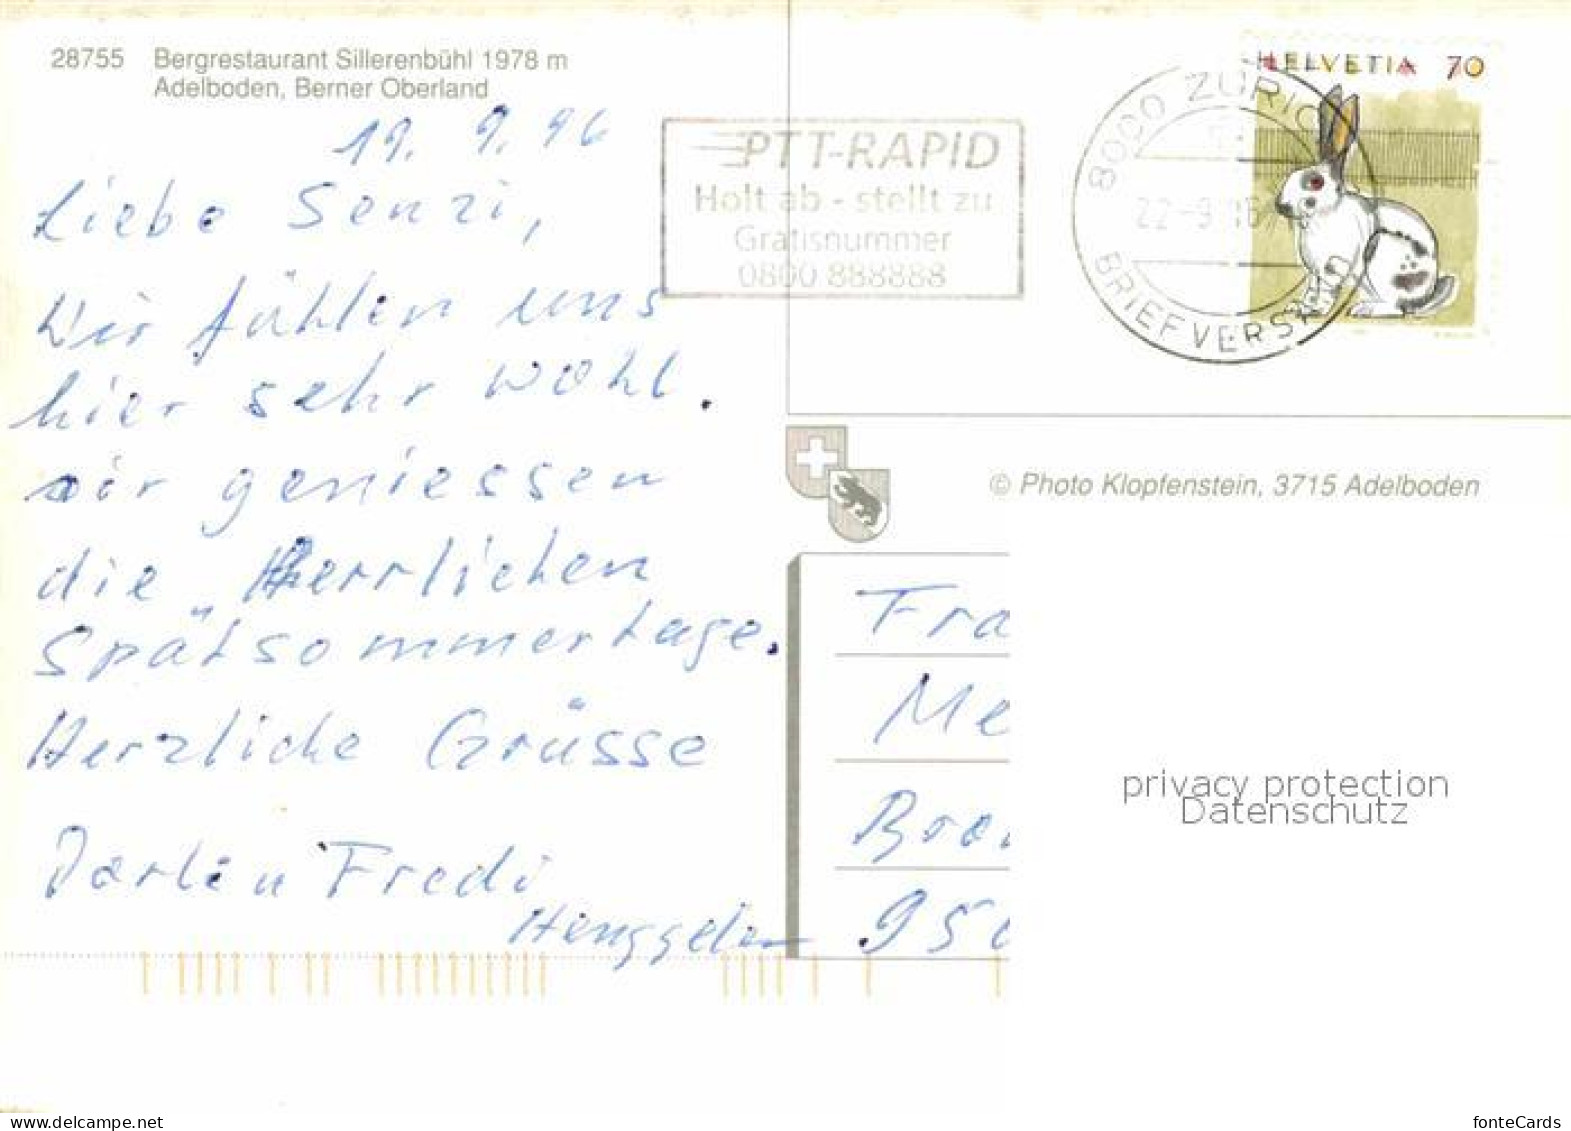 28755 Bergrestaurant Sillerenbühl 1978 m
Adelboden, Berner Oberland
19. 9. 96
Liebe Senzi,
Wir fühlen uns
hier sehr wohl.
wir geniessen
die Herrlichen
Spätsommertage.
Herzliche Grüsse
Fredi
Henggeler
PTT-RAPID
Holt ab - stellt zu
Gratisnummer
0800 888888
8000 ZÜRICH
22-9
BRIEFVERSAND
HELVETIA 70
© Photo Klopfenstein, 3715 Adelboden
Fra
Me
950
privacy protection
Datenschutz
www.delcampe.net
fonteCards